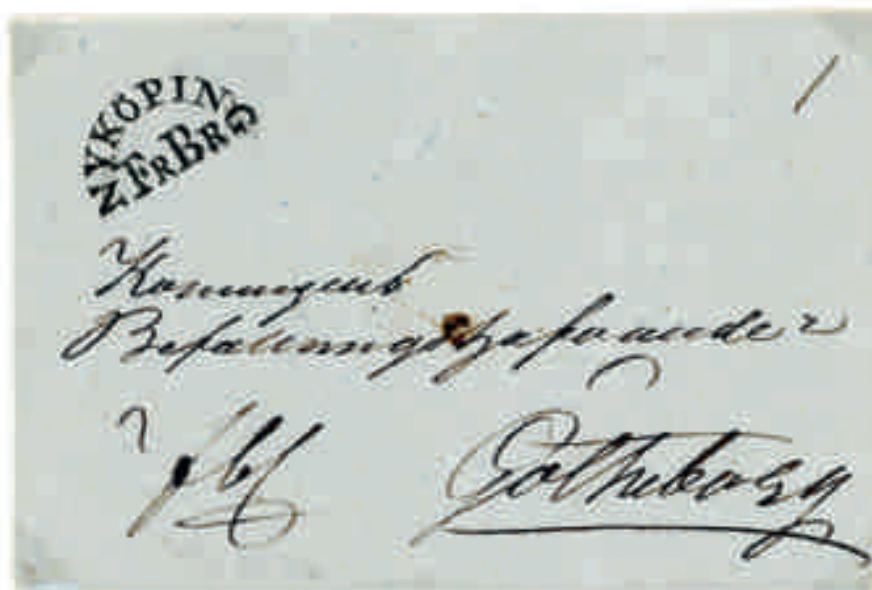 NYKÖPING
FRBRG
Konungens
Befallningshafvande
Götheborg